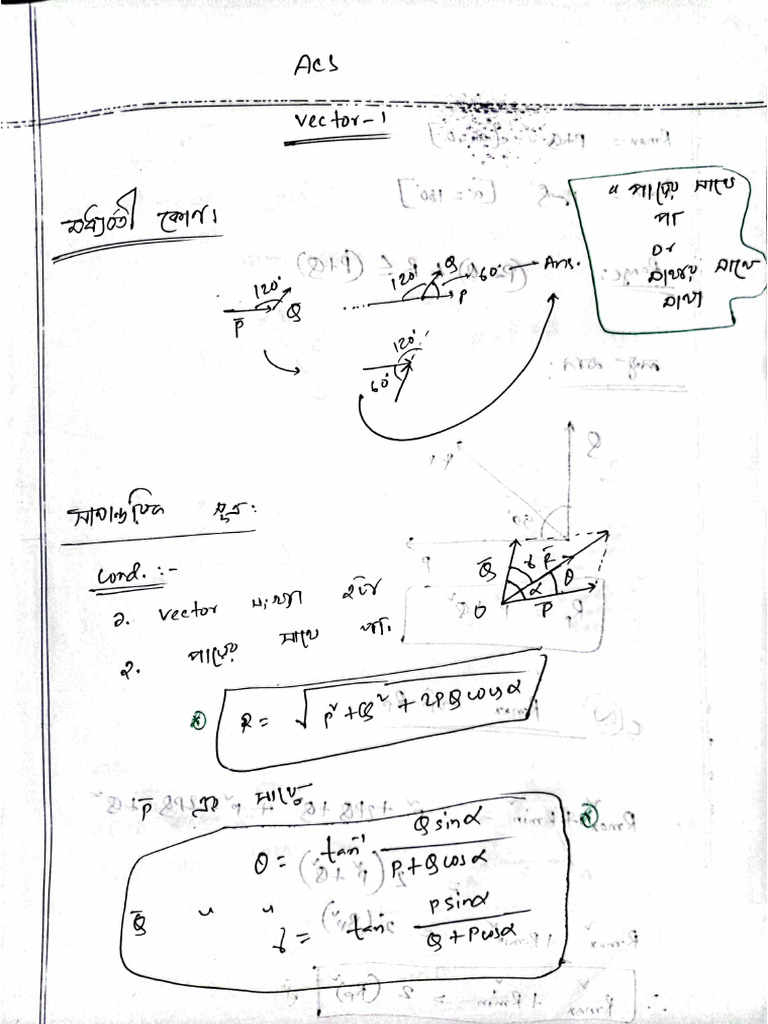 ACS
Vector-1
মধ্যবর্তী কোণ।
" পায়ের সাথে
পা
Or
মাথার সাথে
মাথা
120° P̄ Q
120° Q 60° → Ans.
P
120°
60°
সামান্তরিক সূত্র:
Cond. :-
১. vector সংখ্যা ২টা
২. পায়ের সাথে পা।
Q̄ R̄ θ α O P̄
R = √P² + Q² + 2PQ cosα
P̄ এর সাথে
θ = tan⁻¹ Q sinα / P + Q cosα
Q̄ " " = tan⁻¹ P sinα / Q + P cosα